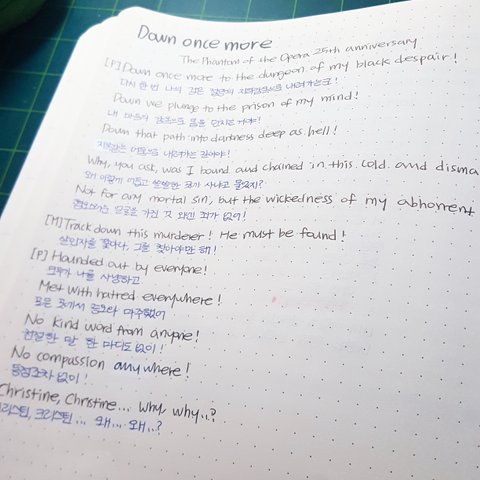 Down once more
The Phantom of the Opera 25th anniversary
[P] Down once more to the dungeon of my black despair!
다시 한 번 나의 깊은 절망의 지하감옥으로 내려가는구나!
Down we plunge to the prison of my mind!
내 마음의 감옥으로 몸을 던지는 거야!
Down that path into darkness deep as hell!
지옥같은 어둠으로 내려가는 길이야!
Why, you ask, was I bound and chained in this cold and disma
왜 이렇게 어둡고 쓸쓸한 곳에 사냐고 물었지?
Not for any mortal sin, but the wickedness of my abhorrent
얼굴을 가진 것 외엔 죄가 없어!
[M] Track down this murderer! He must be found!
살인자를 쫓아라, 그를 찾아야만 해!
[P] Hounded out by everyone!
모두가 나를 사냥하고
Met with hatred everywhere!
모든 곳에서 증오와 마주했어
No kind word from anyone!
친절한 말 한 마디도 없이!
No compassion anywhere!
동정조차 없이!
Christine, Christine... Why, why..?
크리스틴, 크리스틴... 왜... 왜..?